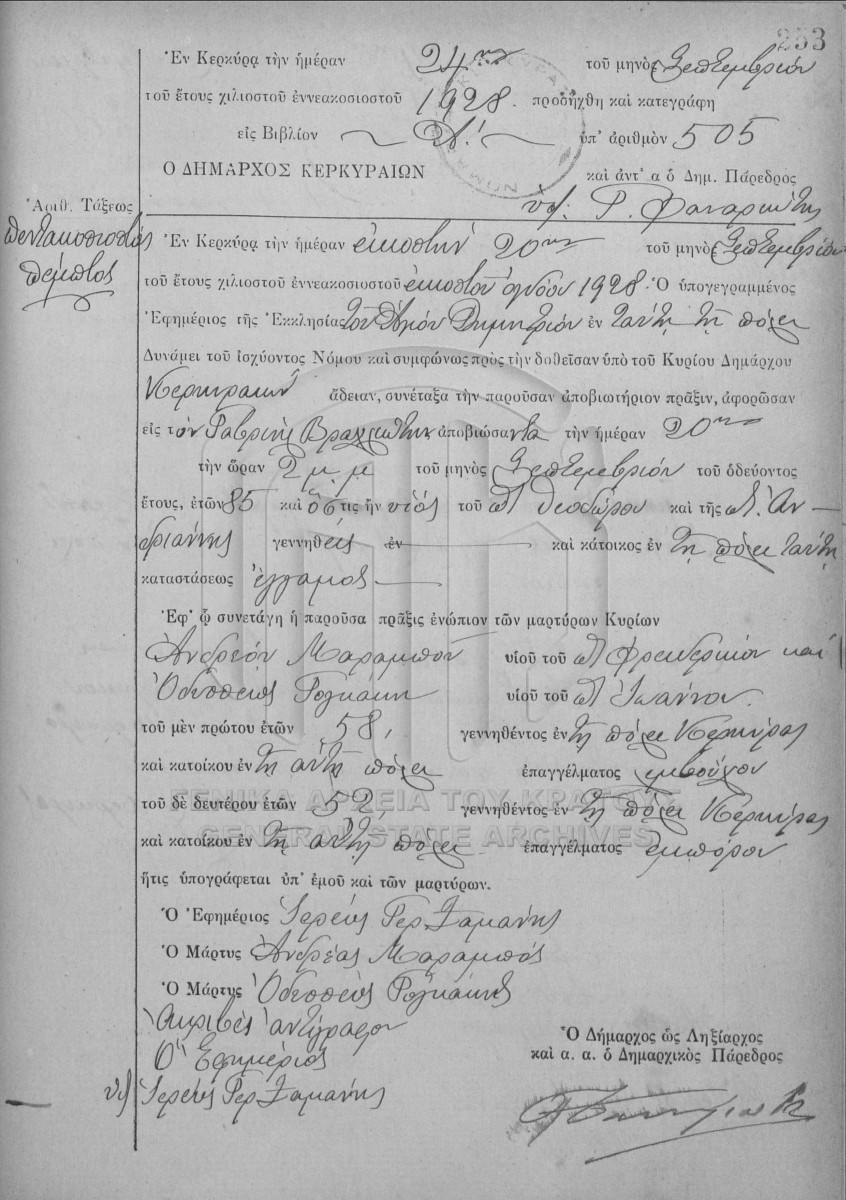 253
Ἐν Κερκύρᾳ τὴν ἡμέραν 24ην τοῦ μηνὸς Σεπτεμβρίου
τοῦ ἔτους χιλιοστοῦ ἐννεακοσιοστοῦ 1928. προσήχθη καὶ κατεγράφη
εἰς Βιβλίον Α! ὑπ' ἀριθμὸν 505
Ο ΔΗΜΑΡΧΟΣ ΚΕΡΚΥΡΑΙΩΝ καὶ ἀντ' α ὁ Δημ. Πάρεδρος
Ἀριθ. Τάξεως
πεντακοσιοστὸς
πέμπτος
Ἐν Κερκύρᾳ τὴν ἡμέραν εἰκοστὴν 20ην τοῦ μηνὸς Σεπτεμβρίου
τοῦ ἔτους χιλιοστοῦ ἐννεακοσιοστοῦ εἰκοστοῦ ὀγδόου 1928. Ὁ ὑπογεγραμμένος
Ἐφημέριος τῆς Ἐκκλησίας τοῦ Ἁγίου Δημητρίου ἐν ταύτῃ τῇ πόλει
Δυνάμει τοῦ ἰσχύοντος Νόμου καὶ συμφώνως πρὸς τὴν δοθεῖσαν ὑπὸ τοῦ Κυρίου Δημάρχου
Κερκυραίων ἄδειαν, συνέταξα τὴν παροῦσαν ἀποβιωτήριον πρᾶξιν, ἀφορῶσαν
εἰς τὸν Γαβριὴλ ἀποβιώσαντα τὴν ἡμέραν 20ην
τὴν ὥραν 2 μ.μ τοῦ μηνὸς Σεπτεμβρίου τοῦ ὁδεύοντος
ἔτους, ἐτῶν 85 καὶ ὅστις ἦν υἱὸς τοῦ Θεοδώρου καὶ τῆς Ἀν-
δριάννης γεννηθεὶς ἐν καὶ κάτοικος ἐν τῇ πόλει ταύτῃ
καταστάσεως ἔγγαμος
Ἐφ' ᾧ συνετάγη ἡ παροῦσα πρᾶξις ἐνώπιον τῶν μαρτύρων Κυρίων
Ἀνδρέου Μαραμποῦ υἱοῦ τοῦ Φρειδερίκου καὶ
Ὀδυσσέως υἱοῦ τοῦ Ἰωάννου.
τοῦ μὲν πρώτου ἐτῶν 58, γεννηθέντος ἐν τῇ πόλει Κερκύρας
καὶ κατοίκου ἐν τῇ αὐτῇ πόλει ἐπαγγέλματος
τοῦ δὲ δευτέρου ἐτῶν 52, γεννηθέντος ἐν τῇ πόλει Κερκύρας
καὶ κατοίκου ἐν τῇ αὐτῇ πόλει ἐπαγγέλματος ἐμπόρου
ἥτις ὑπογράφεται ὑπ' ἐμοῦ καὶ τῶν μαρτύρων.
Ὁ Ἐφημέριος Ἱερεὺς Γερ. Σαμάνης
Ὁ Μάρτυς Ἀνδρέας Μαραμπός
Ὁ Μάρτυς Ὀδυσσεὺς
Ἀκριβὲς ἀντίγραφον
Ὁ Ἐφημέριος
Ἱερεὺς Γερ. Σαμάνης
Ὁ Δήμαρχος ὡς Ληξίαρχος
καὶ α. α. ὁ Δημαρχικὸς Πάρεδρος
ΓΕΝΙΚΑ ΑΡΧΕΙΑ ΤΟΥ ΚΡΑΤΟΥΣ
GENERAL STATE ARCHIVES